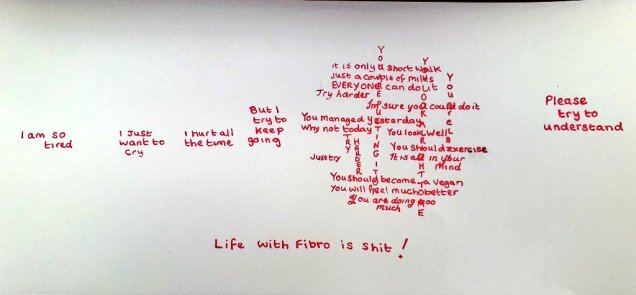 I am so
tired
I Just
want to
cry
I hurt all
the time
But I
try to
keep
going
it is only a short walk
Just a couple of miles
EVERYONE can do it
Try harder
Im sure you could do it
You managed yesterday
Why not today
You look well
You should exercise
It is all in your
mind
TRY
HARDER
Just try
You should become a vegan
You will feel much better
You are doing too
much
Please
try to
understand
Life with Fibro is shit!